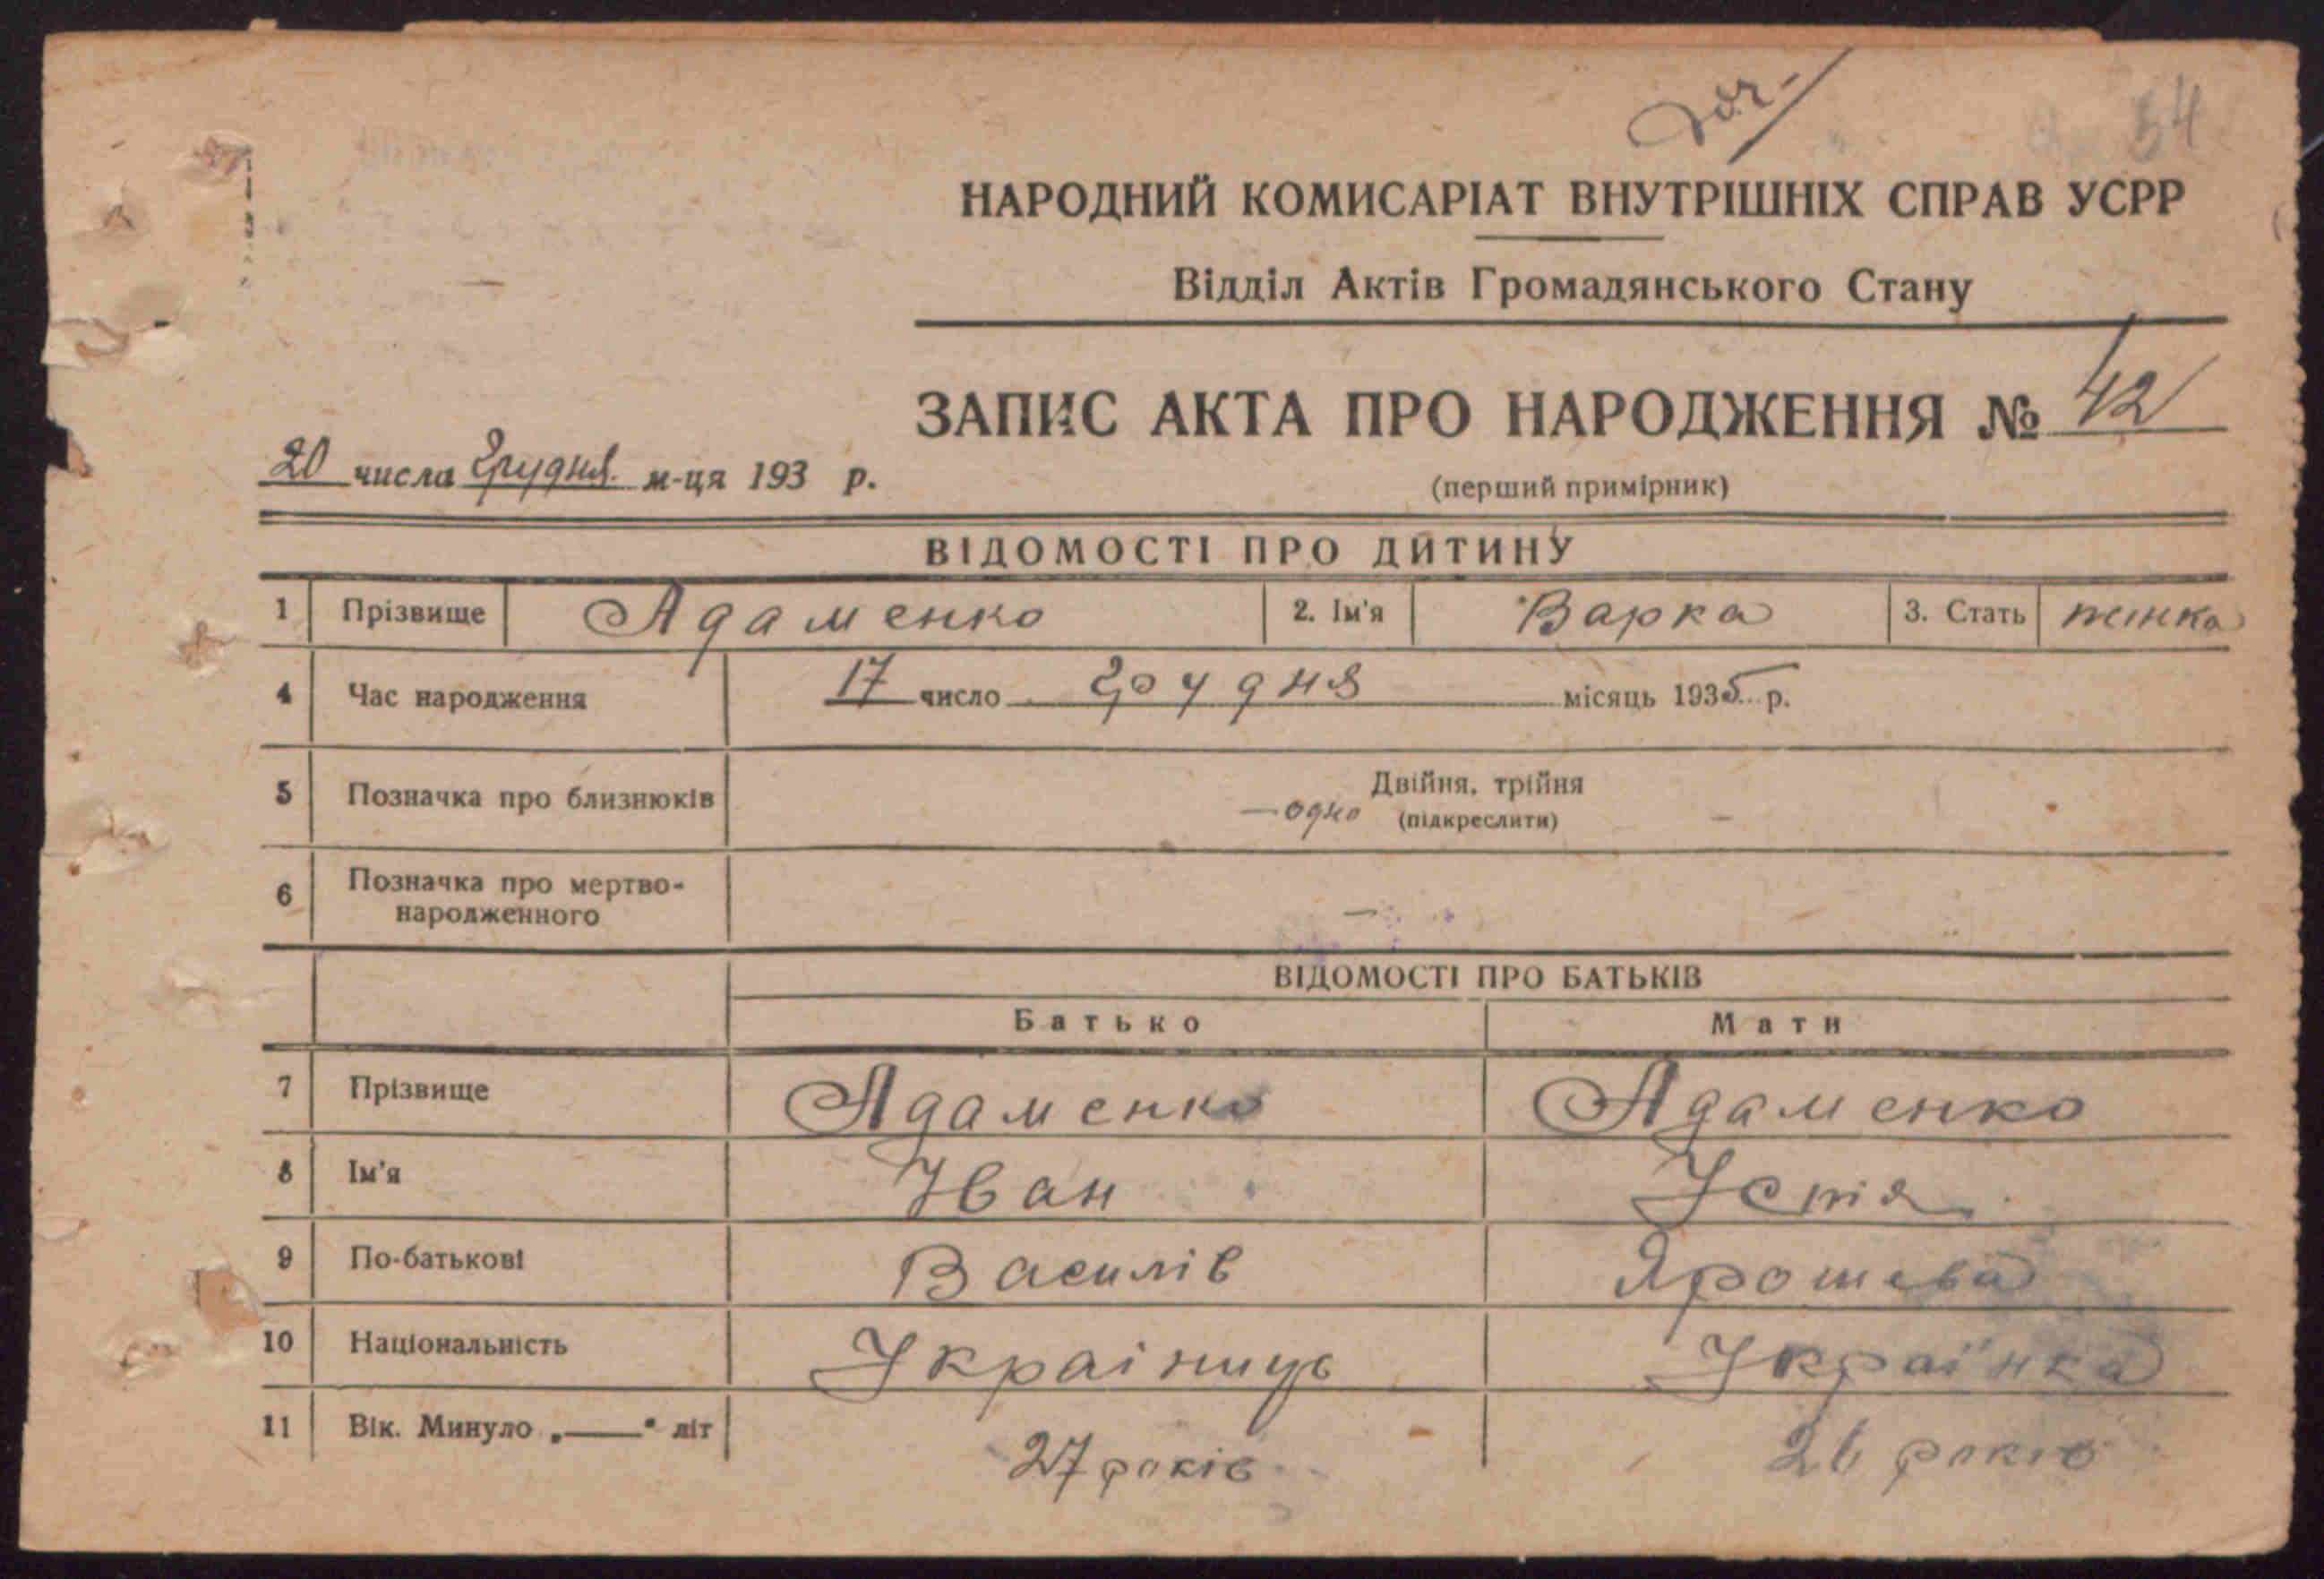 54
НАРОДНИЙ КОМИСАРІАТ ВНУТРІШНІХ СПРАВ УСРР
Відділ Актів Громадянського Стану
ЗАПИС АКТА ПРО НАРОДЖЕННЯ № 42
20 числа Грудня м-ця 193 р.
(перший примірник)
ВІДОМОСТІ ПРО ДИТИНУ
1 Прізвище Адаменко 2. Ім'я Варка 3. Стать жінка
4 Час народження 17 число Грудня місяць 1935 р.
5 Позначка про близнюків Двійня, трійня
— одно (підкреслити) –
6 Позначка про мертво-
народженного —
ВІДОМОСТІ ПРО БАТЬКІВ
Батько Мати
7 Прізвище Адаменко Адаменко
8 Ім'я Іван Устя
9 По-батькові Василів Ярошева
10 Національність Українць Українка
11 Вік. Минуло „——" літ 27 років 26 років